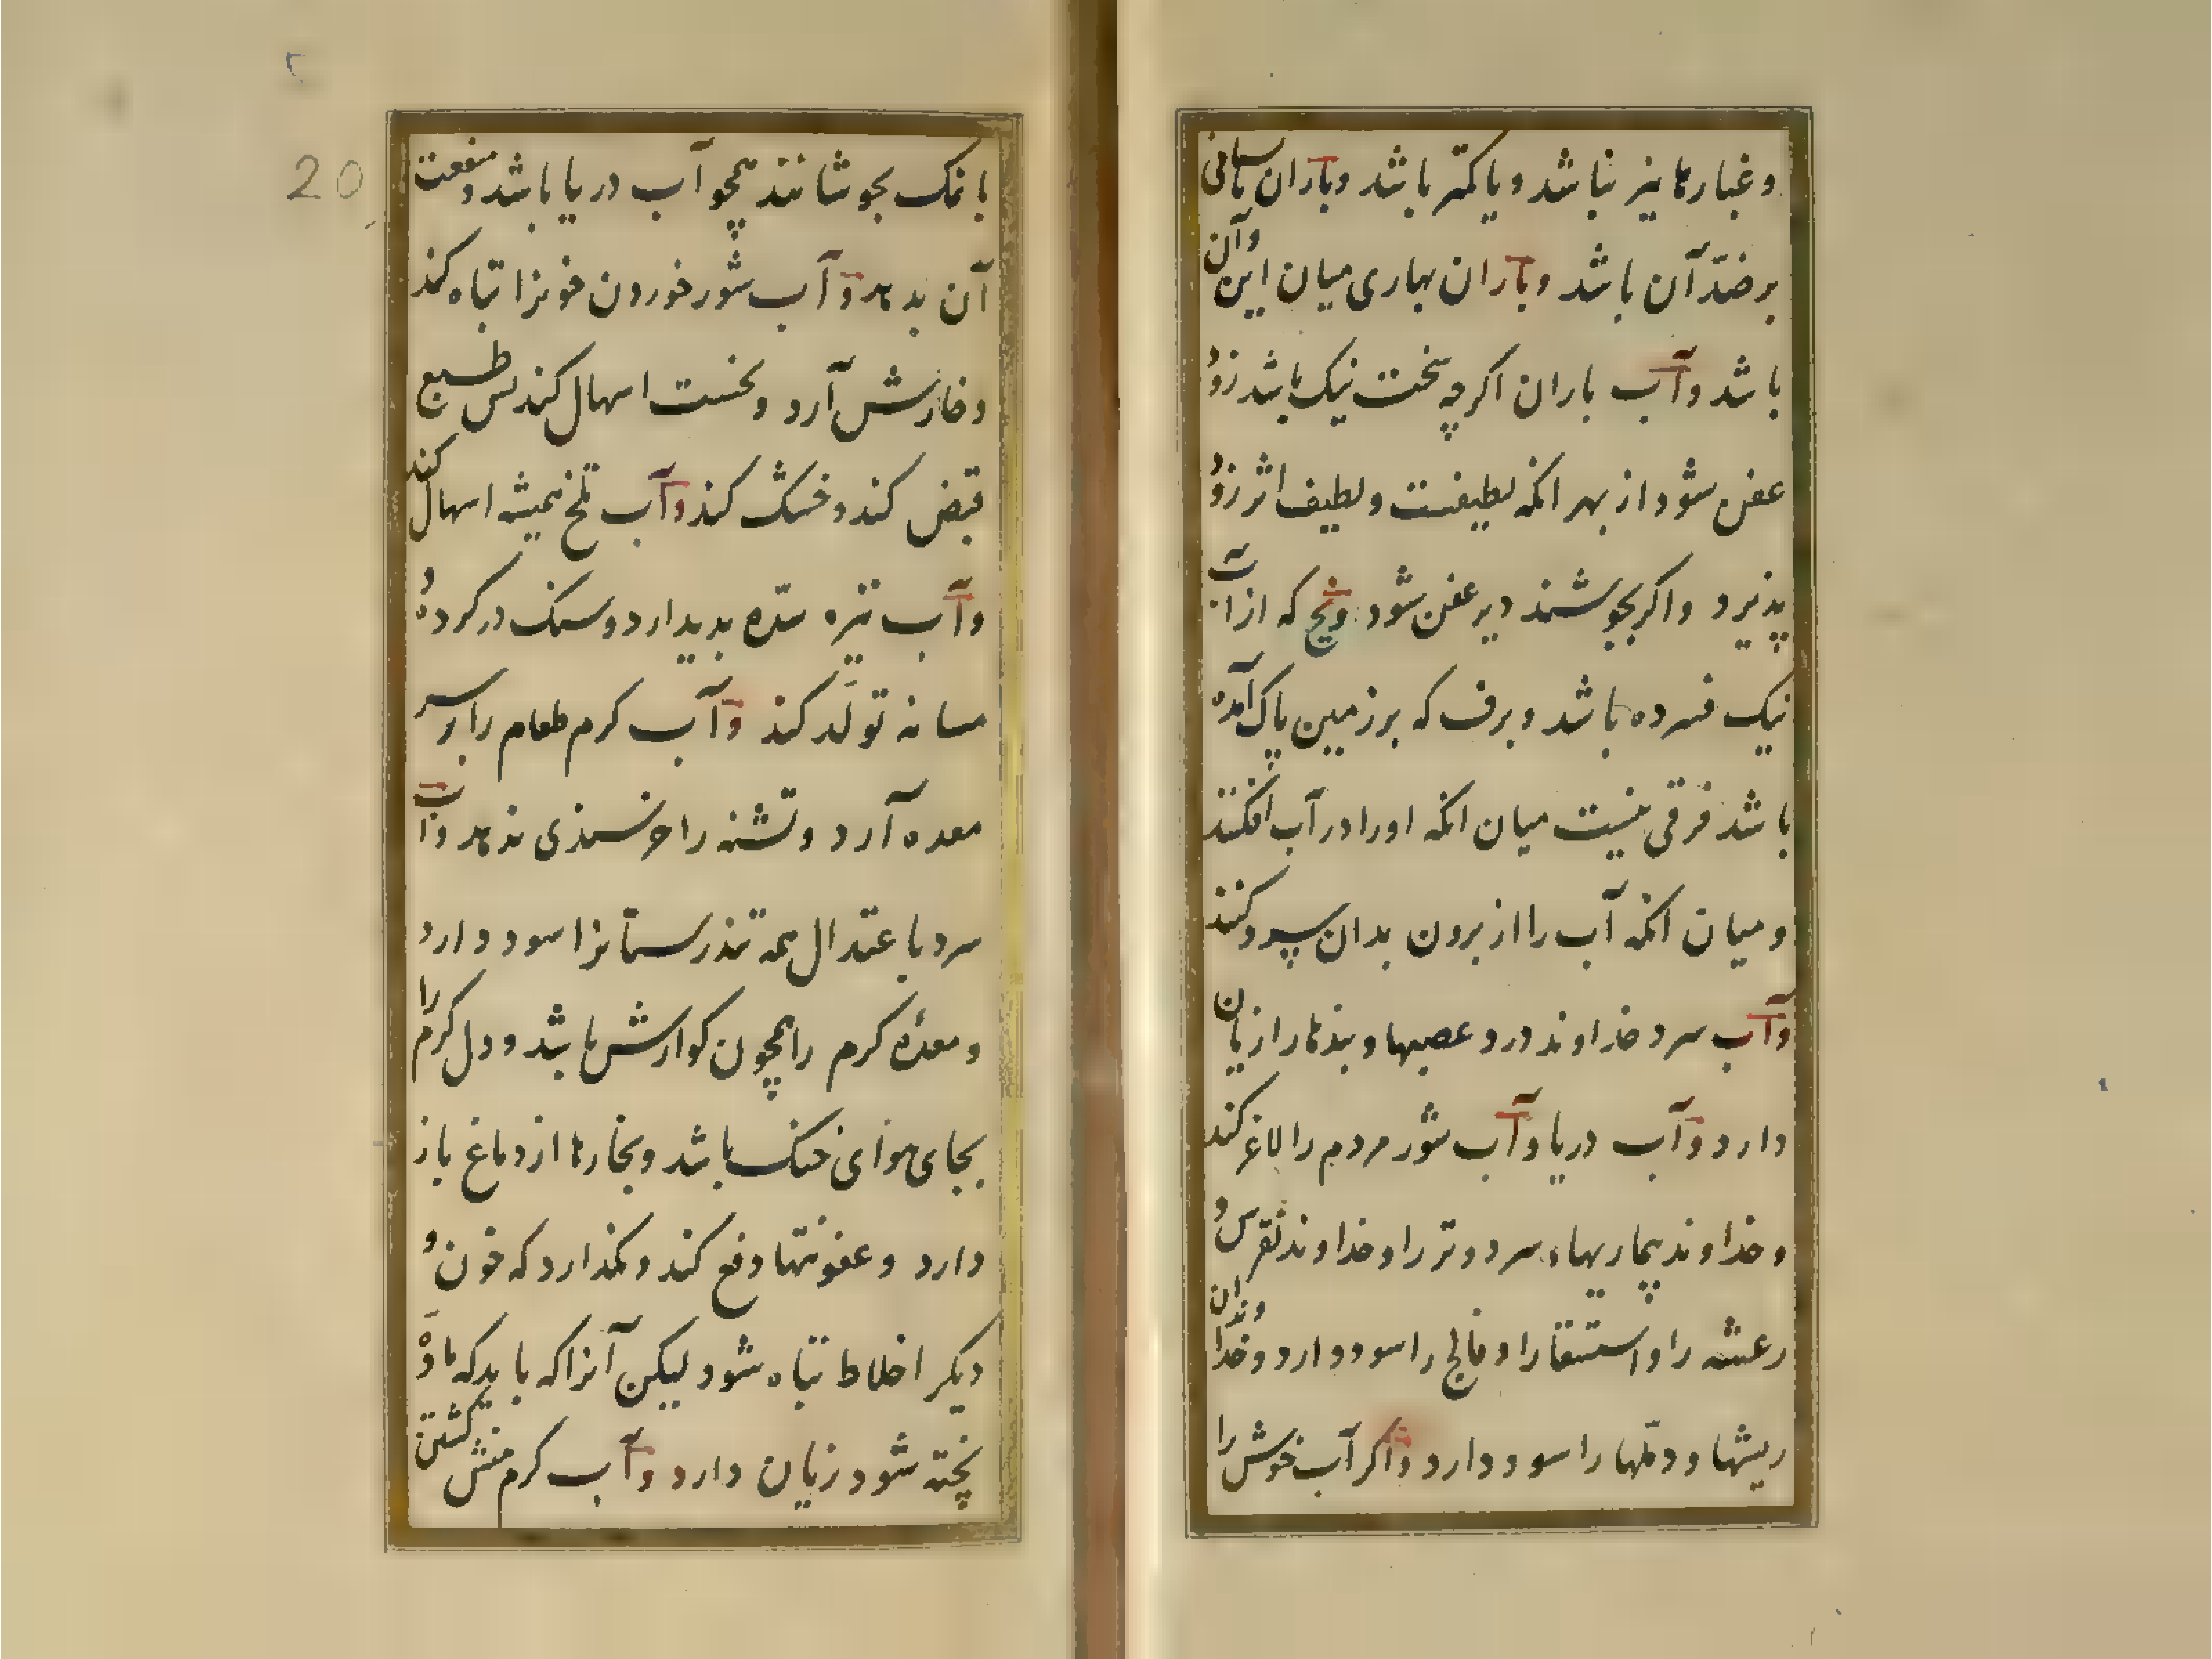 و غبارها نیز نباشد و یا کمتر باشد و باران
بر ضدّ آن باشد و باران بهاری میان این و آن
باشد و آب باران اکرچه سخت نیک باشد زود
عفن شود از بهر انکه لطیفست و لطیف اثر زود
پذیرد و اکر بجوشنند دیر عفن شود و یخ که از آب
نیک فسرده باشد و برف که بر زمین پاک آمده
باشد فرقی نیست میان انکه او را در آب افکنند
و میان انکه آب را از برون بدان سرد کنند
و آب سرد خداوند درد عصبها و بندها را زیان
دارد و آب دریا و آب شور مردم را لاغر کند
و خداوند بیماریهاء سرد و تر را و خداوند نقرس و
رعشه را و استسقا را و فالج را سود دارد و خداوندان
ریشها و دملها را سود دارد و اکر آب خوش را
با نمک بجوشانند همچو آب دریا باشد و منفعت
آن بدهد و آب شور خوردن خونرا تباه کند
و خارش آرد و نخست اسهال کند پس طبع
قبض کند و خشک کند و آب تلخ همیشه اسهال کند
و آب تیره سدّه بدید ارد و سنک در کرده و
مسانه تولّد کند و آب کرم طعام را بر سر
معده آرد و تشنه را خرسندی ندهد و آب
سرد باعتدال همه تندرستانرا سود دارد
و معدهٔ کرم را همچون کوارش باشد و دل کرم را
بجای هوای خنک باشد و بخارها از دماغ باز
دارد و عفونتها دفع کند و نکذارد که خون و
دیکر اخلاط تباه شود لیکن آنرا که باید که مادّه
پخته شود زیان دارد و آب کرم منش کشتن
20